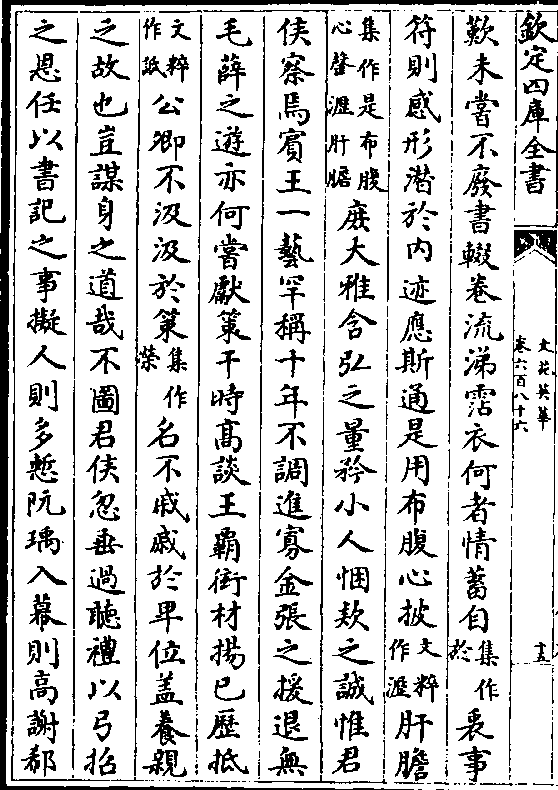 欽定四庫全書
文苑英華
卷六百八十六
十五
歎未嘗不廢書輟卷流涕霑衣何者情蓄自集作於衷事
符則感形潜於内迹應斯通是用布腹心披文粹作瀝肝膽
集作是布腹心罄瀝肝膽庶大雅含弘之量矜小人悃欵之誠惟君
侯察焉賓王一藝罕稱十年不調進寡金張之援退無
毛薛之遊亦何嘗獻策干時髙談王霸衒材揚已歴抵
文粹作詆公卿不汲汲於策集作榮名不戚戚於卑位盖養親
之故也豈謀身之道哉不圖君侯忽垂過聽禮以弓招
之恩任以書記之事擬人則多慙阮瑀入幕則高謝郄